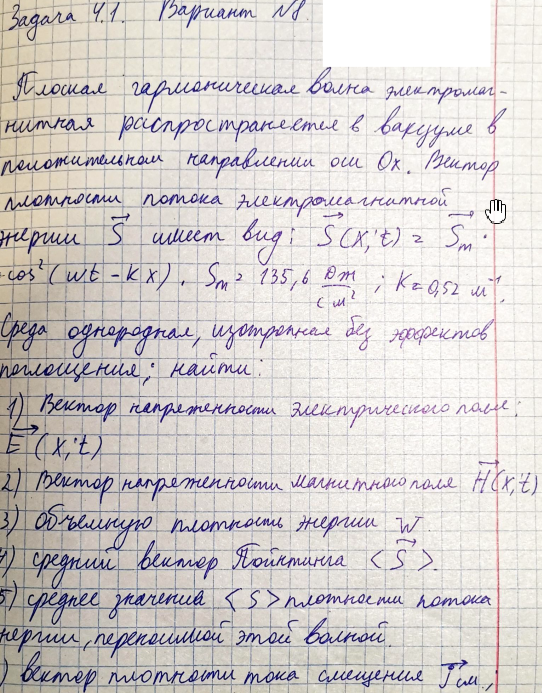 Задача 4.1. Вариант №8.
Плоская гармоническая волна электромаг-
нитная распространяется в вакууме в
положительном направлении оси Ox. Вектор
плотности потока электромагнитной
энергии S⃗ имеет вид: S⃗(x;t) = S⃗m ·
·cos²(ωt - kx). Sm = 135,6 Дж/(с м²); K = 0,52 м⁻¹.
Среда однородная, изотропная без эффектов
поглощения; найти:
1) Вектор напряженности электрического поля:
E⃗(x;t)
2) Вектор напряженности магнитного поля H⃗(x;t)
3) объемную плотность энергии w.
4) средний вектор Пойнтинга <S⃗>.
5) среднее значений <S> плотности потока
энергии, переносимой этой волной.
) вектор плотности тока смещения j⃗см.;